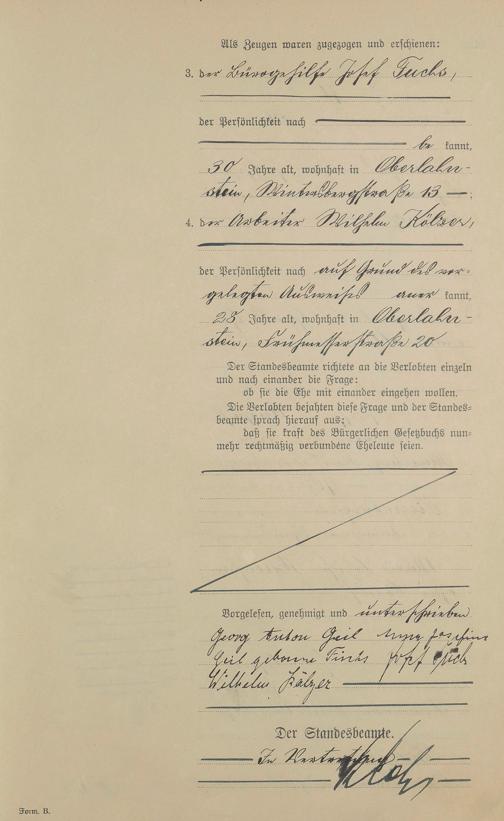 Als Zeugen waren zugezogen und erschienen:
3. der Bürogehilfe Josef Fuchs,
der Persönlichkeit nach
be kannt,
30 Jahre alt, wohnhaft in Oberlahn-
stein, Wintersbergstraße 13 —;
4. der Arbeiter Wilhelm Kölzer,
der Persönlichkeit nach auf Grund des vor-
gelegten Ausweises aner kannt,
28 Jahre alt, wohnhaft in Oberlahn-
stein, Frühmesserstraße 20
Der Standesbeamte richtete an die Verlobten einzeln
und nach einander die Frage:
ob sie die Ehe mit einander eingehen wollen.
Die Verlobten bejahten diese Frage und der Standes-
beamte sprach hierauf aus:
daß sie kraft des Bürgerlichen Gesetzbuchs nun-
mehr rechtmäßig verbundene Eheleute seien.
Vorgelesen, genehmigt und unterschrieben
Georg Anton Geil Anna Josefine
Geil geborene Josef Fuchs
Wilhelm Kölzer
Der Standesbeamte.
In Vertretung
Form. B.